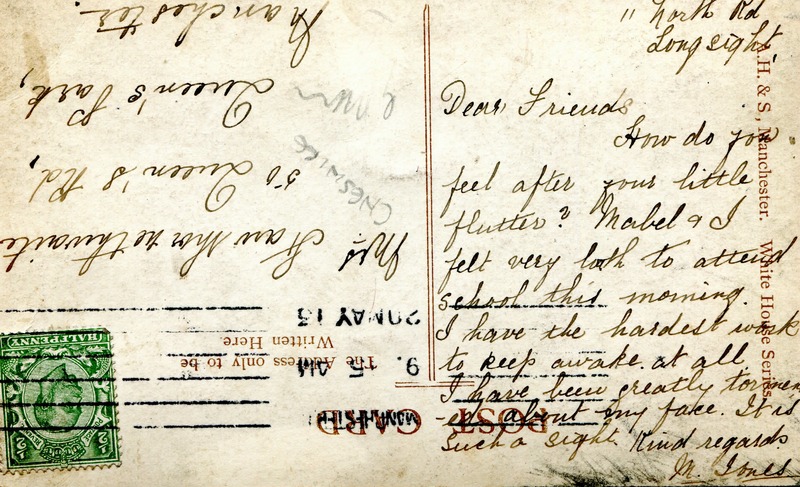 " North Rd
Longsight,
Dear Friends
How do you
feel after your little
flutter? Mabel & I
felt very loth to attend
school this morning.
I have the hardest work
to keep awake at all
I have been greatly tormen
-ed about my face. It is
such a sight. Kind regards
M. Jones
A.H. & S., Manchester. White House Series.
POST CARD
The Address only to be
Written Here.
9. 15 AM
20 MAY 13
Mrs
50 Queen's Rd,
Queen's Park,
Manchester.
HALFPENNY